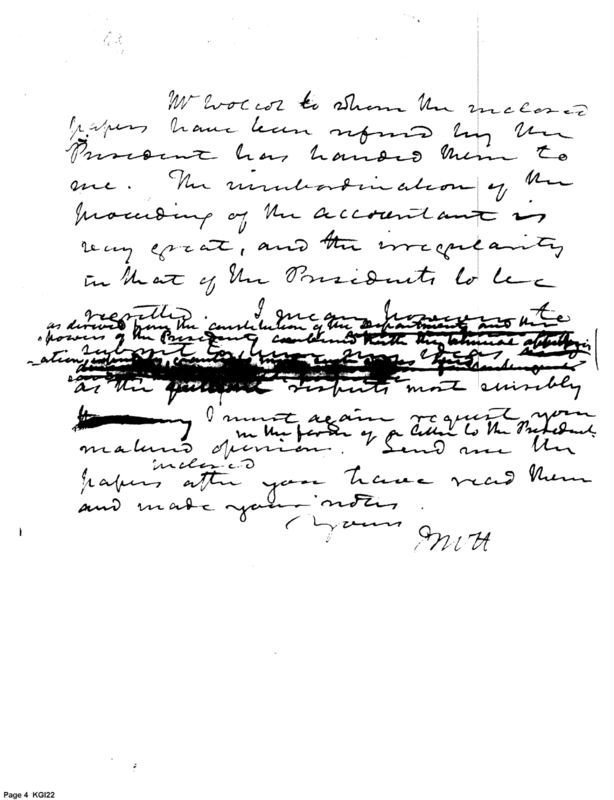 Mr Wolcot to whom the inclosed
papers have been referred by the
President has handed them to
me. The insubordination of the
proceeding of the accountant is
very great, and the irregularity
in that of the Presidents to be
regretted. I mean however to
as derived from the constitution of the Departments and the
powers of the President
as the respects most sensibly
I must again request your
in the form of a letter to the President.
matured opinion. Send me the
inclosed
papers after you have read them
and made your notes.
Yours
JMcH
Page 4 KGI22